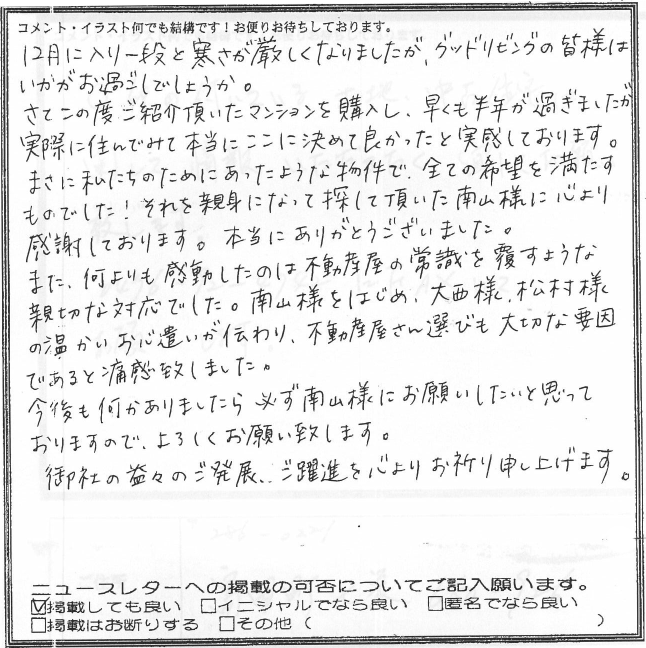 コメント・イラスト何でも結構です！お便りお待ちしております。
12月に入り一段と寒さが厳しくなりましたが、グッドリビングの皆様は
いかがお過ごしでしょうか。
さてこの度ご紹介頂いたマンションを購入し、早くも半年が過ぎましたが
実際に住んでみて本当にここに決めて良かったと実感しております。
まさに私たちのためにあったような物件で、全ての希望を満たす
ものでした！それを親身になって探して頂いた南山様に心より
感謝しております。本当にありがとうございました。
また、何よりも感動したのは不動産屋の常識を覆すような
親切な対応でした。南山様をはじめ、大西様、松村様
の温かいお心遣いが伝わり、不動産屋さん選びも大切な要因
であると痛感致しました。
今後も何かありましたら必ず南山様にお願いしたいと思って
おりますので、よろしくお願い致します。
御社の益々のご発展、ご躍進を心よりお祈り申し上げます。
ニュースレターへの掲載の可否についてご記入願います。
☑掲載しても良い □イニシャルでなら良い □匿名でなら良い
□掲載はお断りする □その他（ ）